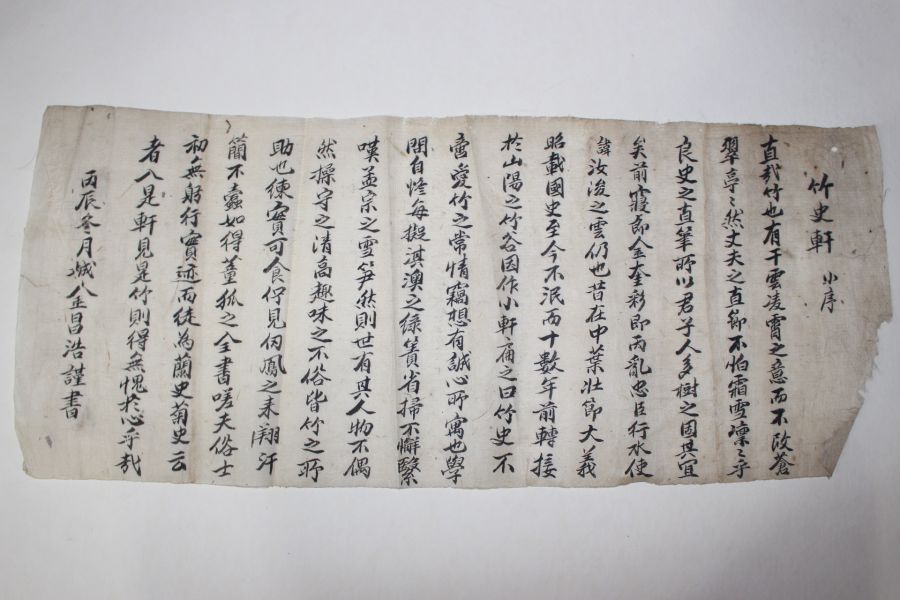 竹史軒 小序
直哉竹也有干雲凌霄之意而不改蒼
翠亭〻然丈夫之直節不怕霜雪凜〻乎
良史之直筆所以君子人多樹之固其宜
矣前寢郎金奎彩即丙亂忠臣行水使
諱汝浚之雲仍也昔在中葉壯節大義
昭載國史至今不泯而十數年前轉接
於山陽之竹谷因作小軒扁之曰竹史不
啻愛竹之常情竊想有誠心所寓也學
問自修每擬淇澳之綠簀省掃不懈繄
嘆孟宗之雪笋然則世有其人物不偶
然操守之清高趣味之不俗皆竹之所
助也練實可食佇見伪鳳之來翔汗
簡不蠹如得董狐之全書嗟夫俗士
初無躬行實迹而徒為蘭史菊史云
者入是軒見是竹則得無愧於心乎哉
丙辰冬月 昌浩謹書